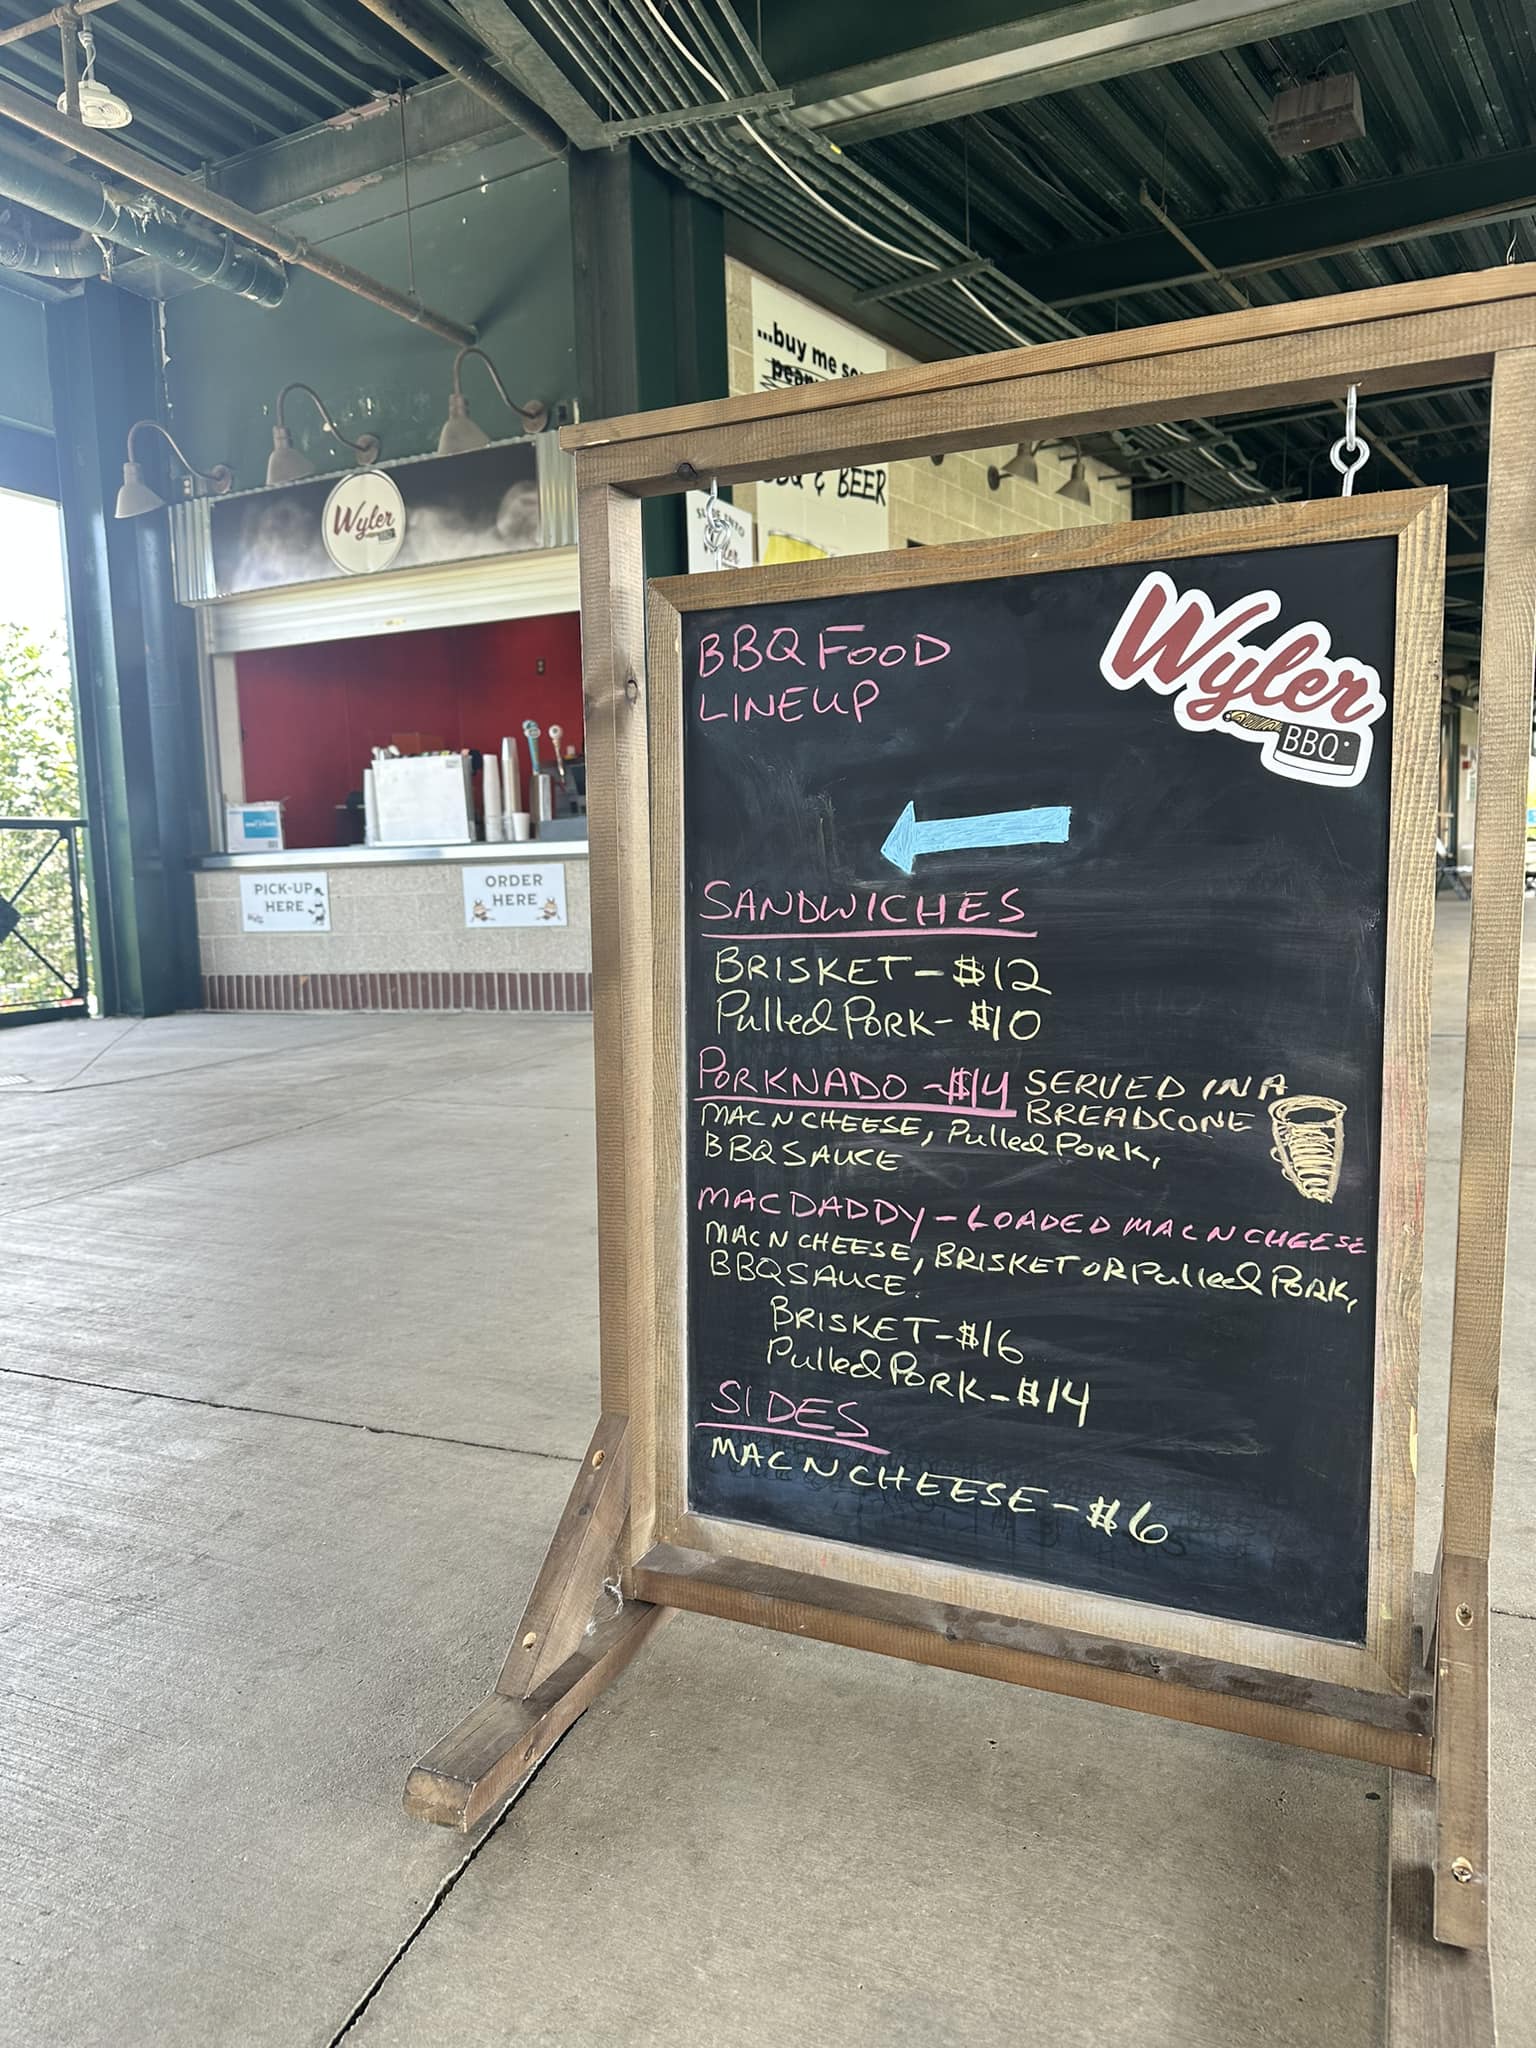 ...buy me so
BBQ & BEER
SLIDE INTO
Wyler
Wyler
BBQ
PICK-UP
HERE
ORDER
HERE
BBQ FOOD
LINEUP
Wyler
BBQ
SANDWICHES
BRISKET - $12
Pulled PORK - $10
PORKNADO - $14 SERVED IN A
BREADCONE
MAC N CHEESE, Pulled PORK,
BBQ SAUCE
MAC DADDY - LOADED MAC N CHEESE
MAC N CHEESE, BRISKET OR Pulled PORK,
BBQ SAUCE.
BRISKET - $16
Pulled PORK - $14
SIDES
MAC N CHEESE - $6